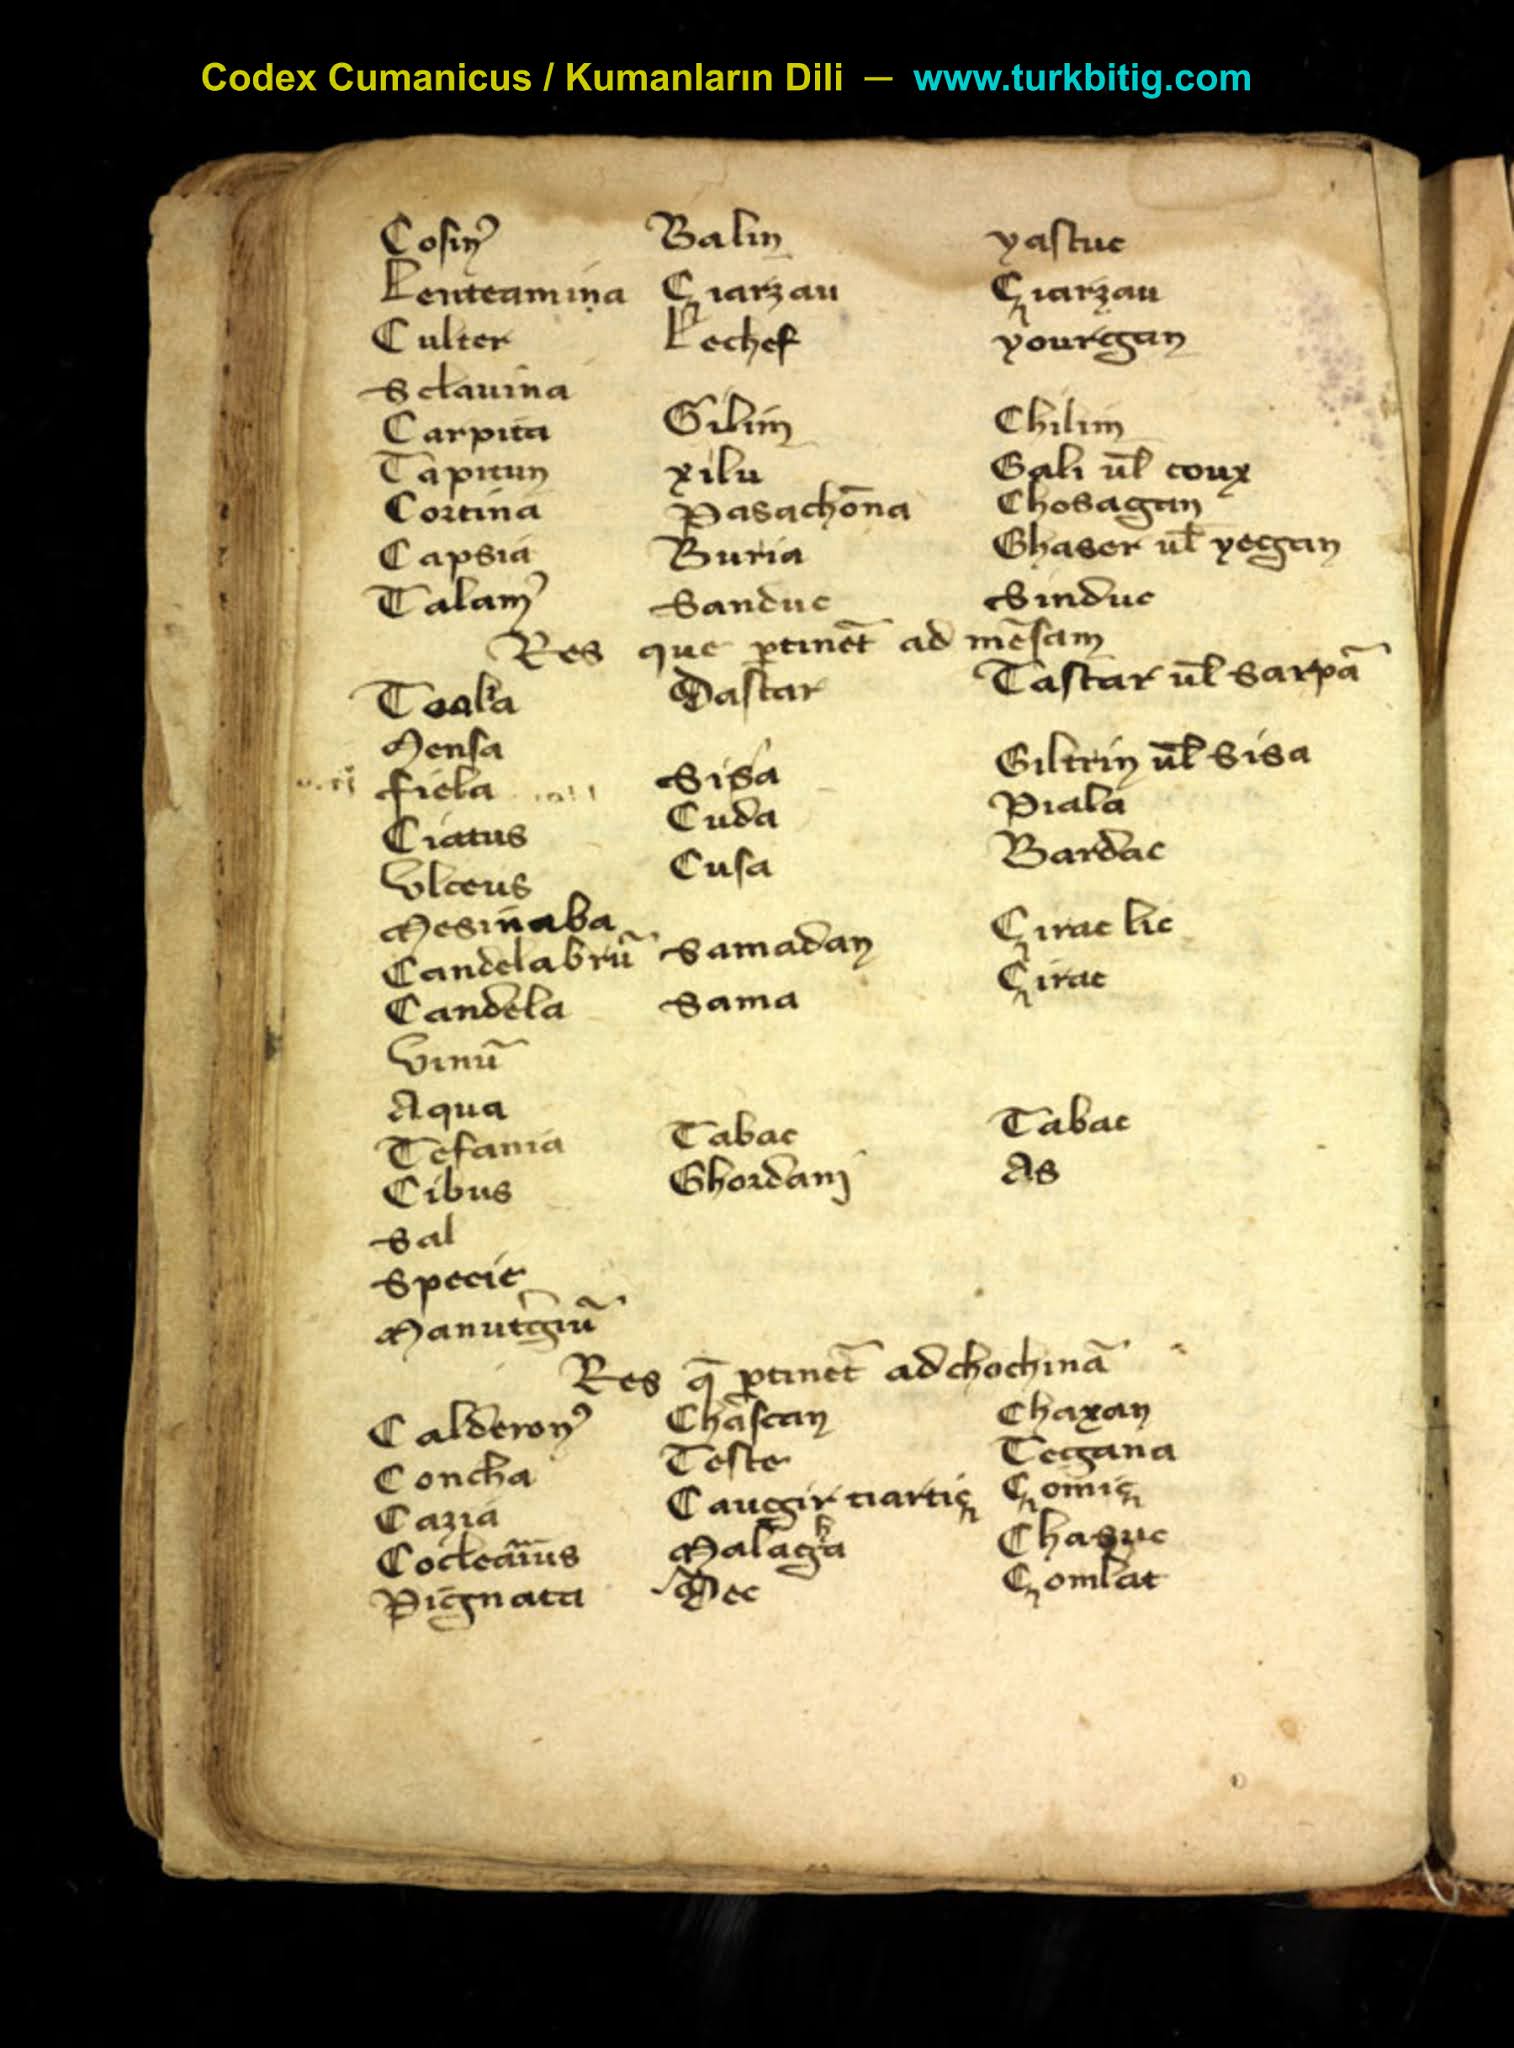 Codex Cumanicus / Kumanların Dili — www.turkbitig.com
Cosinꝰ Balin yastuc
Lenteamina Çiarzau Çiarzau
Culter Lechef yourgan
Sclauina
Carpita Gilim Chilim
Tapitun xilu Gali ul̄ coux
Cortina Pasachōna Chosagan
Capsia Buria Ghaser ul̄ yecgan
Talamꝰ Sanduc Sinduc
Res que ꝑtinēt ad mēsam
Toalia Dastar Tastar ul̄ Sarpā
Mensa
fiela Sisa Giltrin ul̄ Sisa
Ciatus Cuda Piala
Vlceus Cusa Bardac
Mesinaba
Candelabrū Samadan Çirac lic
Candela Sama Çirac
Vinū
Aqua
Tefania Tabac Tabac
Cibus Ghordani As
Sal
Specie
Manut̄giū
Res q̄ ꝑtinēt ad chochinā
Calderonꝰ Chascan Chaxan
Concha Teste Tegana
Cazia Caucgir tiartiç Çomiç
Cocleārius Malagha Chasuc
Pignata Dec Çomlat